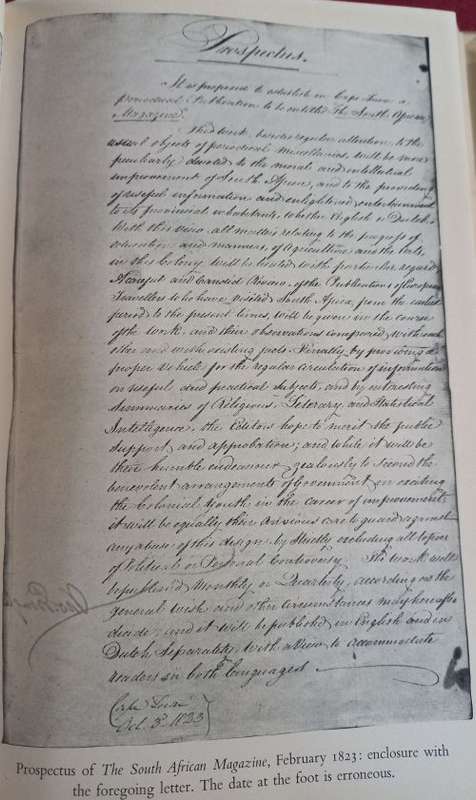 Prospectus.
It is proposed to establish in Cape Town a
periodical Publication to be entitled The South African
Magazine.
This work besides regular attention to the
usual objects of periodical miscellanies, will be more
peculiarly devoted to the moral and intellectual
improvement of South Africa, and to the providing
of useful information and enlightened entertainment
to its provincial inhabitants, whether English or Dutch.
With this view all matters relating to the progress of
education and manners, of Agriculture and the Arts,
in this Colony will be treated with particular regard.
A careful and Candid Review of the Publications of European
Travellers who have visited South Africa, from the earliest
period to the present times, will be given in the course
of the work, and their observations compared with each
other and with existing facts. Finally, by providing a
proper vehicle for the regular circulation of information
on useful and practical subjects, and by interesting
summaries of Religious, Literary, and Statistical
Intelligence, the Editors hope to merit the public
support and approbation; and while it will be
their humble endeavour zealously to second the
benevolent arrangements of Government in exciting
the Colonial Youth in the career of improvement,
it will be equally their anxious care to guard against
any abuse of this design by strictly excluding all topics
of Political or Personal Controversy. The work will
be published Monthly or Quarterly, according as the
general wish and other circumstances may hereafter
decide; and it will be published in English and in
Dutch separately, with a View to accommodate
readers in both languages
Cape Town
Oct. 3d. 1823
Prospectus of The South African Magazine, February 1823: enclosure with
the foregoing letter. The date at the foot is erroneous.